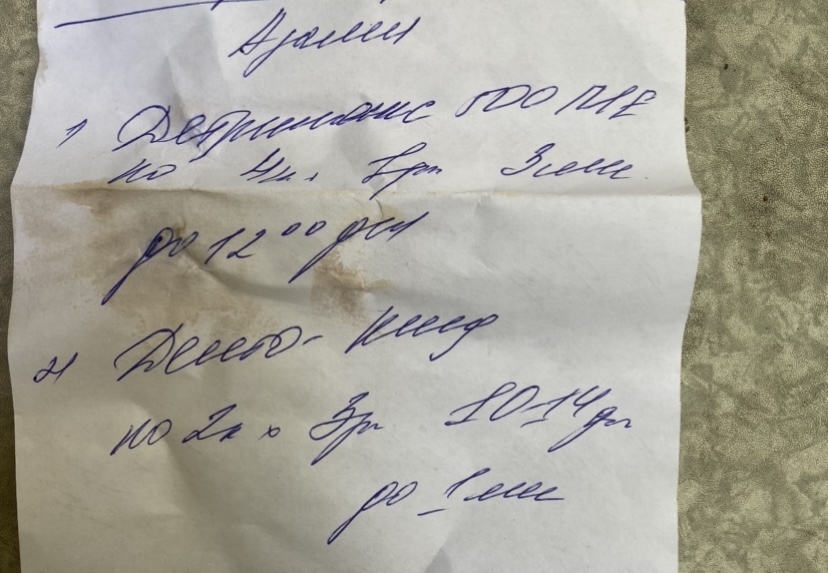 1 Детримакс 500 МЕ
по 4к х 1р 3 мес
до 12⁰⁰ дня
2) - кинд
по 2к х 3р 10-14 дн
до 1 мес